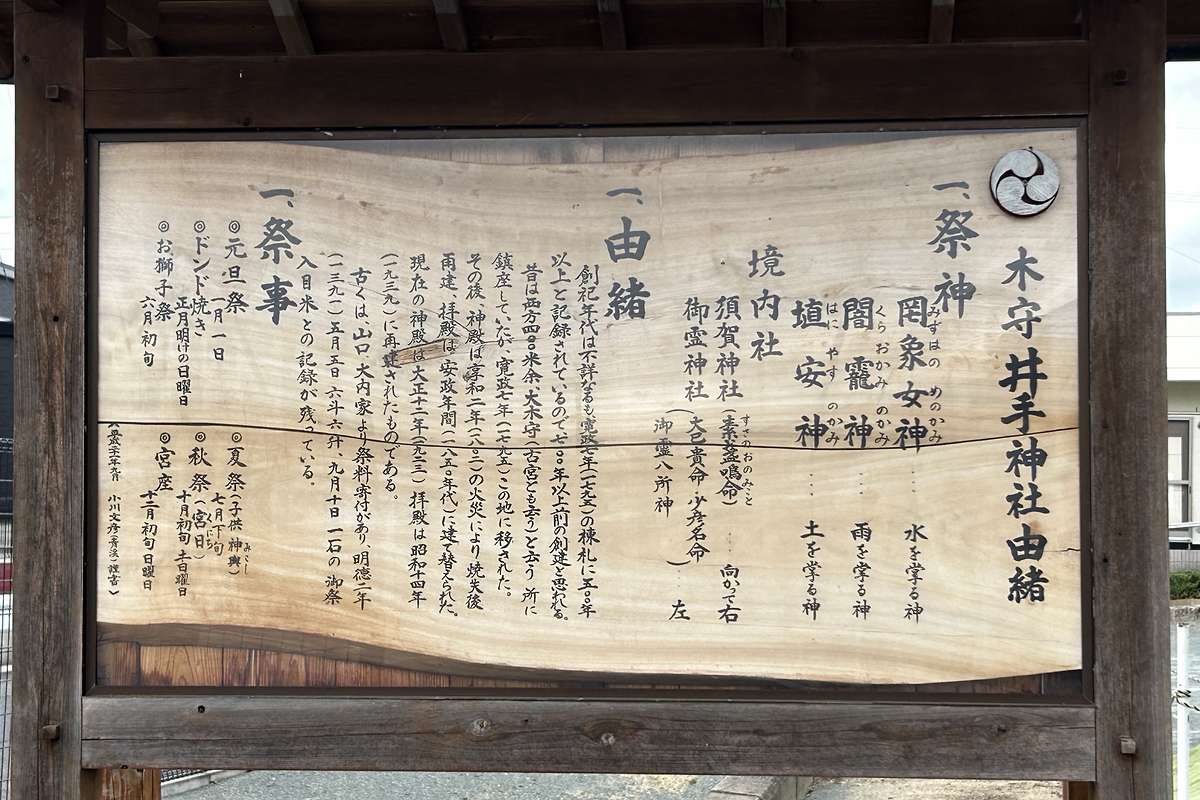 木守井手神社由緒
一、祭神
罔象女神 みずはの めのかみ ‥‥ 水を掌る神
闇龗神 くらおかみ のかみ ‥‥ 雨を掌る神
埴安神 はに やす のかみ ‥‥ 土を掌る神
境内社
須賀神社(素盞嗚命) すさのおのみこと ‥‥ 向かって右
御霊神社(大己貴命・少彦名命 御霊八所神)‥‥ 左
一、由緒
創祀年代は不詳なるも寛政七年(一七九五)の棟札に五〇〇年
以上と記録されているので七〇〇年以上前の創建と思われる。
昔は西方四〇〇米余、大木守(古宮とも云う)と云う所に
鎮座して、たが寛政七年(一七九五)この地に移された。
その後、神殿は享和二年(一八〇二)の火災により焼失後
再建、拝殿は安政年間(一八五〇年代)に建て替えられた。
現在の神殿は大正十二年(一九二三)拝殿は昭和十四年
(一九三九)に再建されたものである。
古くは、山口大内家より祭料寄付があり、明徳二年
(一三九一)五月五日六斗六升、九月十日一石の御祭
入目米との記録が残っている。
一、祭事
◎元旦祭 一月一日
◎ドンド焼き 正月明けの日曜日
◎お獅子祭 六月初旬
◎夏祭(子供神輿) みこし 七月下旬
◎秋祭(宮日) くにち 十月初旬 土日曜日
◎宮座 十二月初旬 日曜日
小川文彦 謹書)